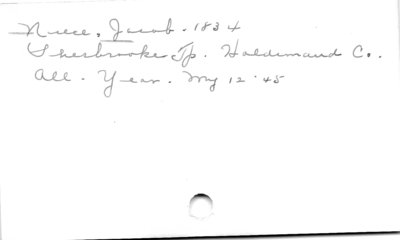 Niece, Jacob - 1834
Sherbrooke Tp. Haldimand Co.
All. Year. My 12 '45